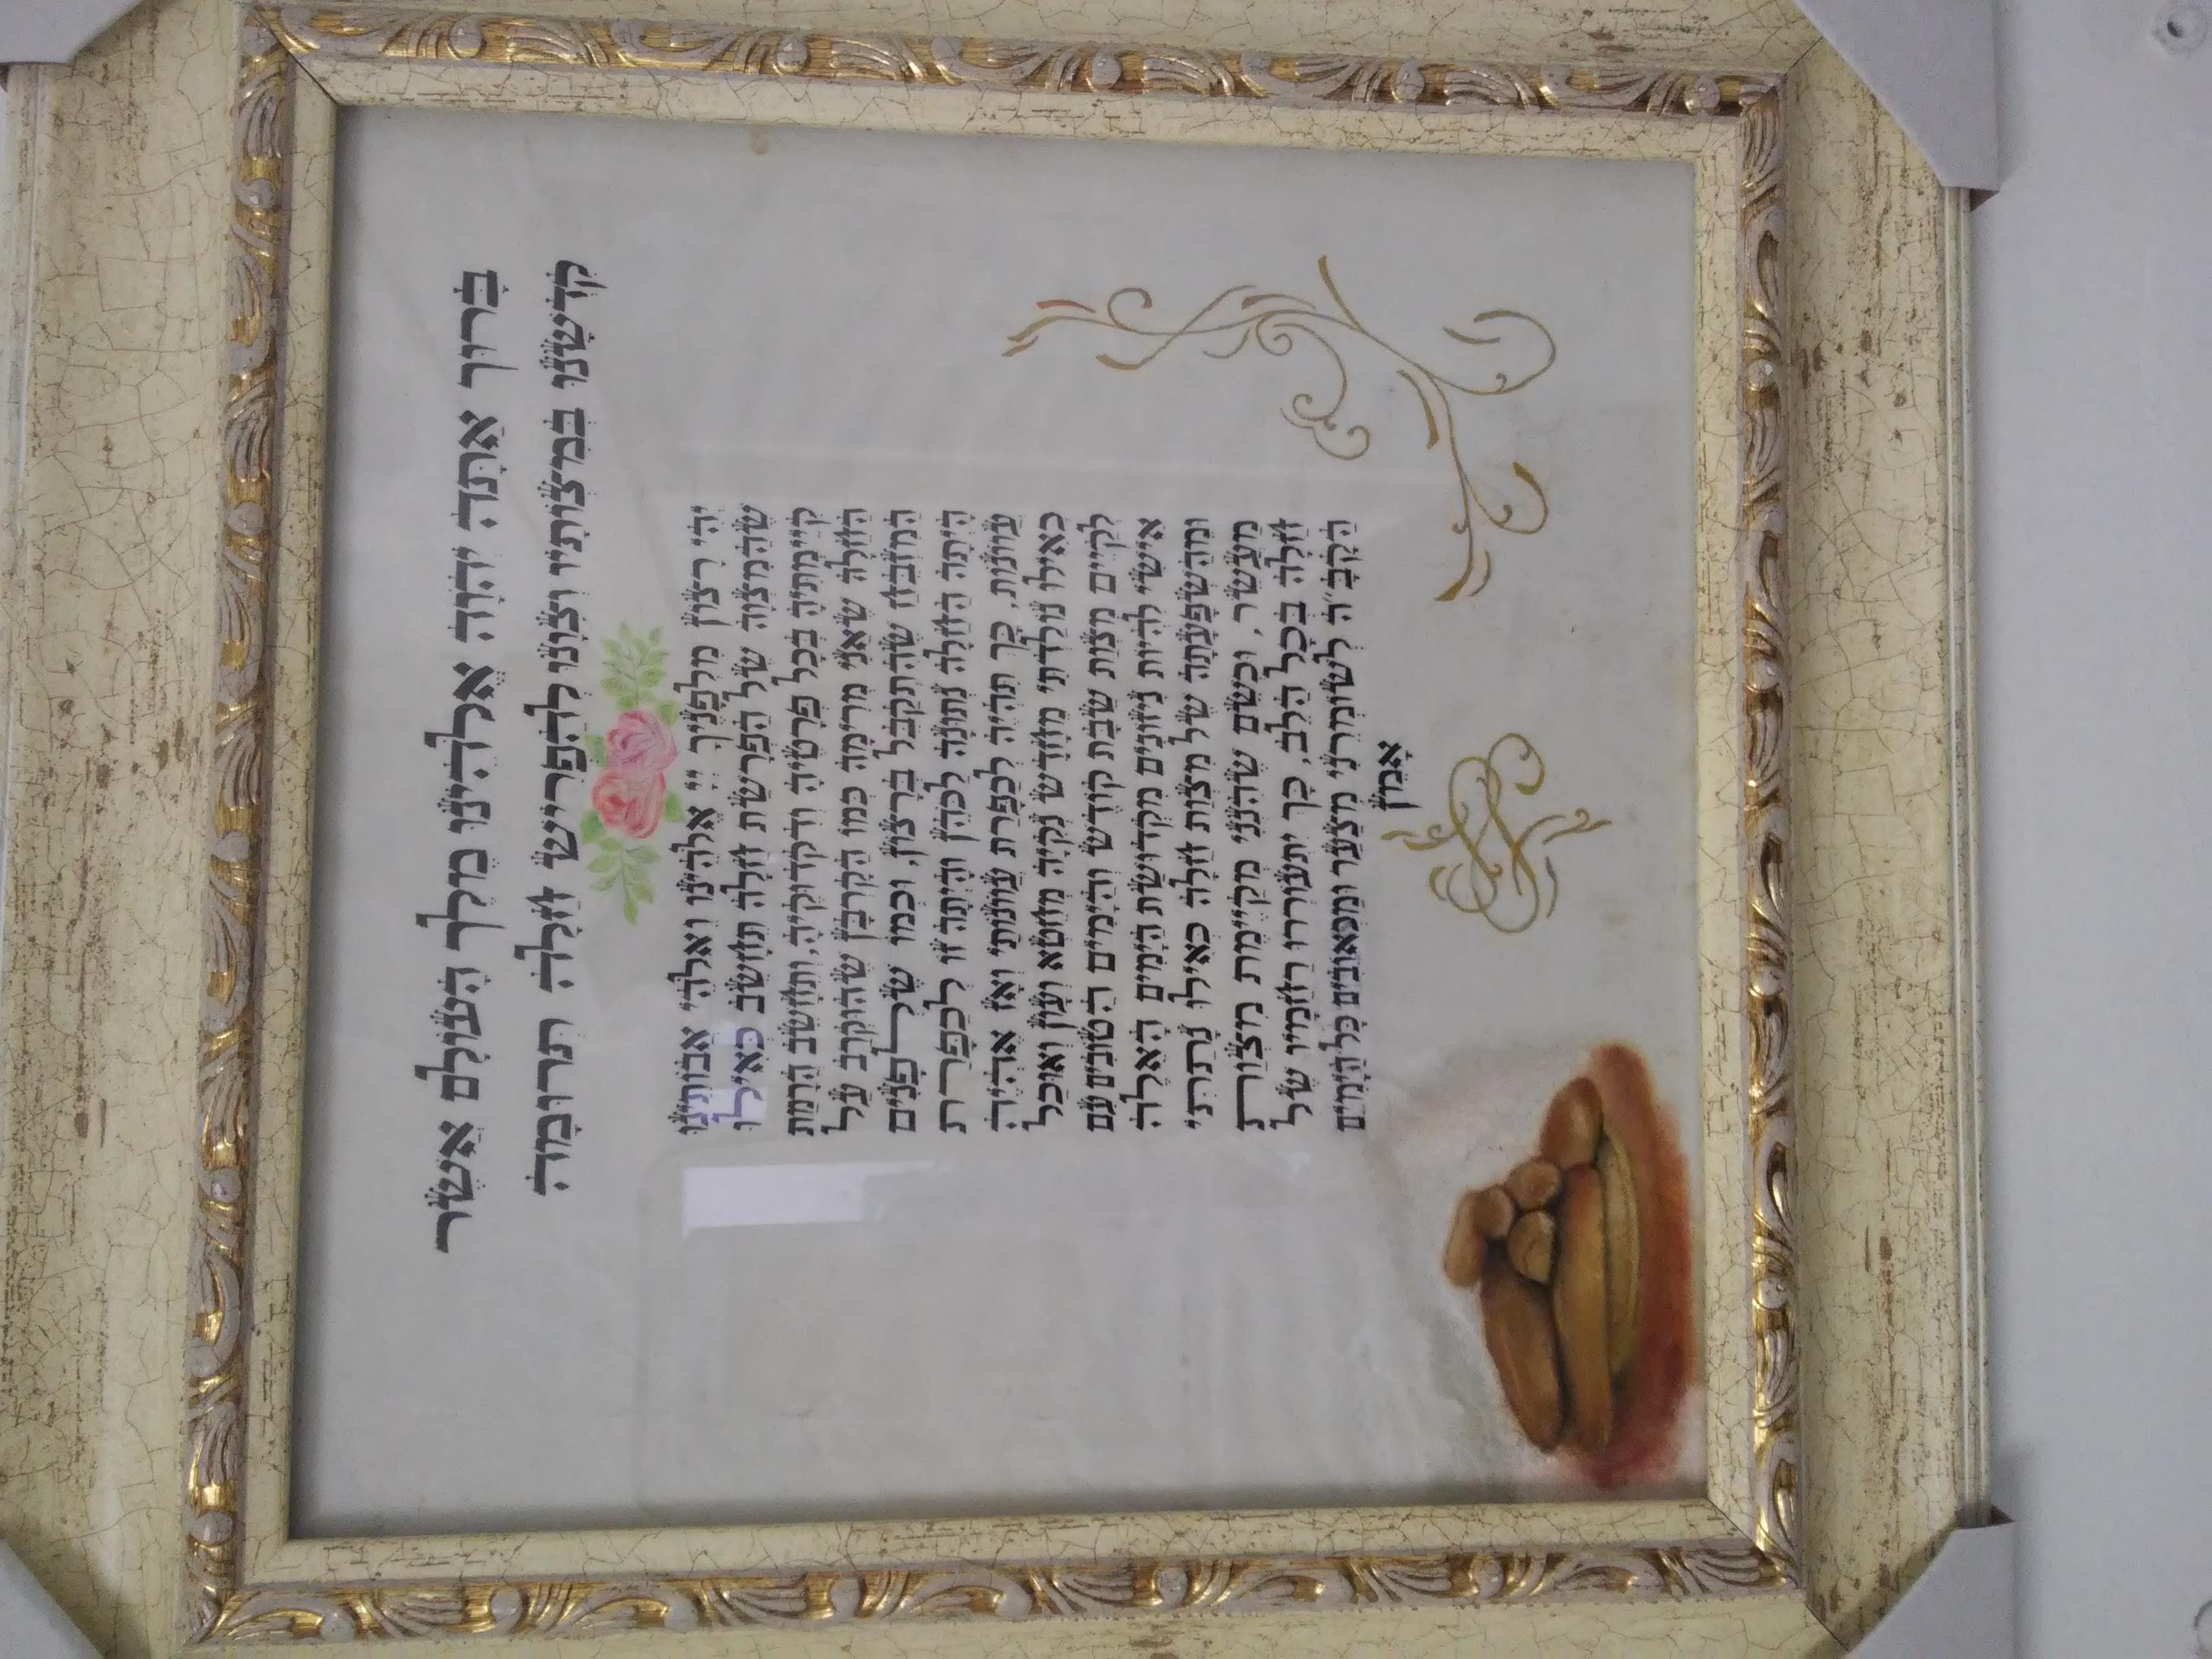 בָּרוּךְ אַתָּה יְהֹוָה אֱלֹהֵינוּ מֶלֶךְ הָעוֹלָם אֲשֶׁר
קִדְּשָׁנוּ בְּמִצְוֹתָיו וְצִוָּנוּ לְהַפְרִישׁ חַלָּה תְּרוּמָה
יְהִי רָצוֹן מִלְּפָנֶיךָ יְיָ אֱלֹהֵינוּ וֵאלֹהֵי אֲבוֹתֵינוּ
שֶׁהַמִּצְוָה שֶׁל הַפְרָשַׁת חַלָּה תֵּחָשֵׁב כְּאִילּוּ
קִיַּימְתִּיהָ בְּכָל פְּרָטֶיהָ וְדִקְדּוּקֶיהָ, וְתֵחָשֵׁב הֲרָמַת
הַחַלָּה שֶׁאֲנִי מְרִימָה כְּמוֹ הַקָּרְבָּן שֶׁהוּקְרַב עַל
הַמִּזְבֵּחַ שֶׁהִתְקַבֵּל בְּרָצוֹן, וּכְמוֹ שֶׁלְּפָנִים
הָיְתָה הַחַלָּה נְתוּנָה לַכֹּהֵן וְהָיְתָה זוֹ לְכַפָּרַת
עֲווֹנוֹת, כָּךְ תִּהְיֶה לְכַפָּרַת עֲווֹנוֹתַי וְאָז אֶהְיֶה
כְּאִילּוּ נוֹלַדְתִּי מֵחָדָשׁ נְקִיָּה מֵחֵטְא וְעָוֹן וְאוּכַל
לְקַיֵּים מִצְוַת שַׁבָּת קוֹדֶשׁ וְהַיָּמִים הַטּוֹבִים עִם
אִישִׁי לִהְיוֹת נִיזּוֹנִים מִקְּדוּשַּׁת הַיָּמִים הָאֵלֶּה
וּמֵהַשְׁפָּעָתָהּ שֶׁל מִצְוַת חַלָּה כְּאִילּוּ נָתַתִּי
מַעֲשֵׂר, וּכְשֵׁם שֶׁהִנְנִי מְקַיֶּימֶת מִצְוַת
חַלָּה בְּכָל הַלֵּב, כָּךְ יִתְעוֹרְרוּ רַחֲמָיו שֶׁל
הַקָּבָּ״ה לְשׁוֹמְרֵנִי מִצַּעַר וּמַכְאוֹבִים כָּל הַיָּמִים
אָמֵן